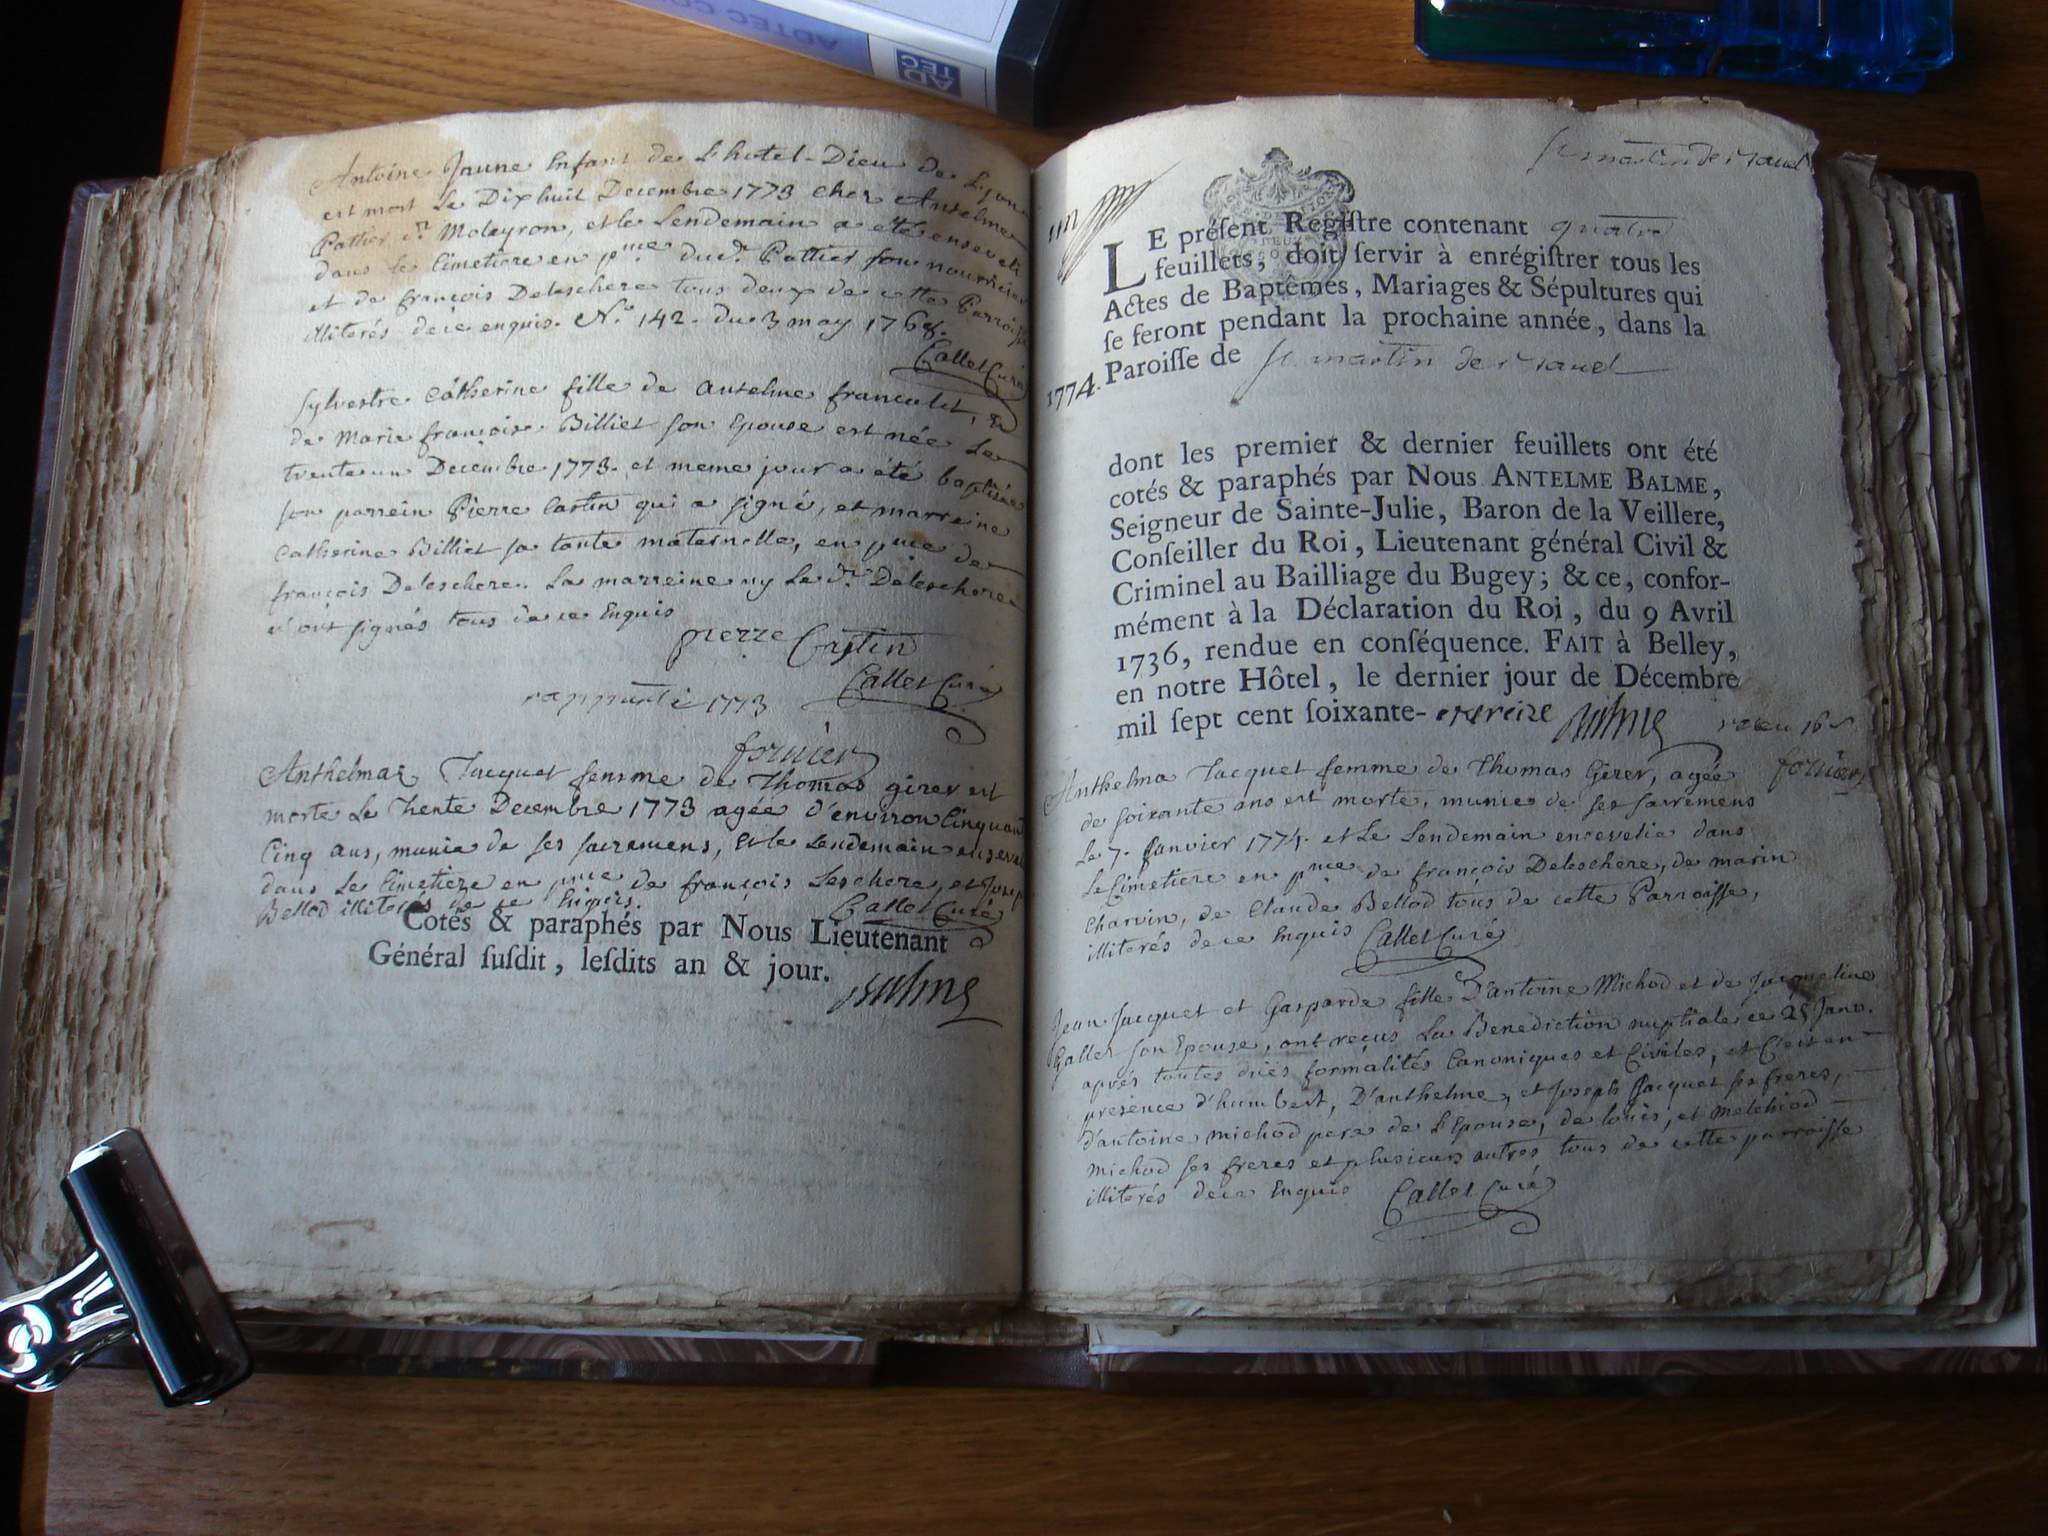 ADTEC CO
AD
TEC
Antoine Jaune Enfant de L'hotel-Dieu de Lyon
est mort Le Dixhuit Decembre 1773 chez Antelme
Pathier dt. Moleyron, et le Lendemain a eté enseveli
dans le Cimetiere en pnce dudt. Pathier son nourricier
et de françois Deleschere tous deux de cette Parroisse
illiterés de ce enquis. No. 142. du 3 may 1768.
Callet Curé
Sylvestre Catherine fille de Antelme francolet, &
de Marie françoise Billiet son Epouse est née Le
trente un Decembre 1773. et meme jour a été baptisée
son parrein Pierre Castin qui a signé, et marreine
Catherine Billiet sa tante maternelle, en pnce de
françois Deleschere. La marreine ny Le dt. Deleschere
n'ont signés tous de ce Enquis
pierre Castin
Callet Curé
1773
fornier
Anthelmaz Jacquet femme de Thomas girer est
morte Le trente Decembre 1773 agée d'environ Cinquante
Cinq ans, munie de ses sacremens, et le Lendemain ensevelie
dans Le Cimetiere en pnce de françois Leschere, et Joseph
Bellod illiterés de ce Enquis. Callet Curé
Cotés & paraphés par Nous Lieutenant
Général ſuſdit, leſdits an & jour.
Balme
St martin de
un
LE préſent Regiſtre contenant quatre
feuillets, doit ſervir à enrégiſtrer tous les
Actes de Baptêmes, Mariages & Sépultures qui
ſe feront pendant la prochaine année, dans la
Paroiſſe de St martin de
1774.
dont les premier & dernier feuillets ont été
cotés & paraphés par Nous ANTELME BALME,
Seigneur de Sainte-Julie, Baron de la Veillere,
Conſeiller du Roi, Lieutenant général Civil &
Criminel au Bailliage du Bugey; & ce, confor-
mément à la Déclaration du Roi, du 9 Avril
1736, rendue en conſéquence. FAIT à Belley,
en notre Hôtel, le dernier jour de Décembre
mil ſept cent ſoixante- et treize Balme
fornier
Anthelma Jacquet femme de Thomas Girer, agée
de soixante ans est morte, munie de ses sacremens
Le 7. Janvier 1774. et Le Lendemain ensevelie dans
Le Cimetiere en pnce de françois Deleschere, de marin
Charvin, de Claude Bellod tous de cette Parroisse,
illiterés de ce Enquis Callet Curé
Jean Jacquet et Gasparde fille D'antoine Michod et de Jacqueline
Gallet son Epouse, ont reçus La Benediction nuptiale ce 25 Janv.
aprés toutes formalités Canoniques et Civiles, et C'est en
presence d'humbert, D'anthelme, et Joseph Jacquet ses freres,
d'antoine michod pere de L'Epouse, de Louis, et melchiod
michod ses freres et plusieurs autres tous de cette parroisse
illiterés de ce Enquis Callet Curé